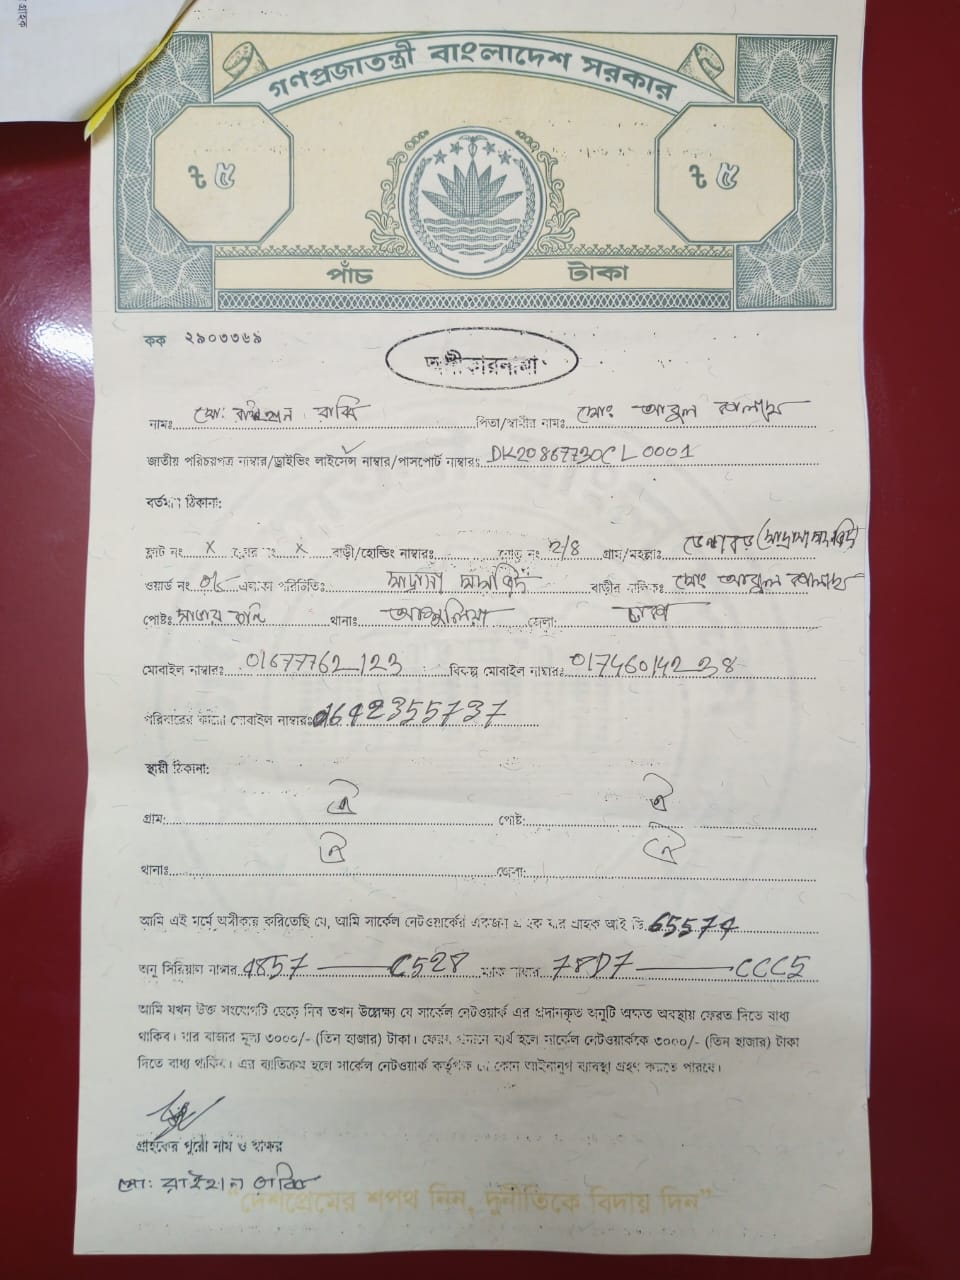 গ্রাহক
গণপ্রজাতন্ত্রী বাংলাদেশ সরকার
৳ ৫ ৳ ৫
পাঁচ টাকা
কক ২৯০৩৩৬৯
অঙ্গীকারনামা
নামঃ মো: রাইহান রাব্বি পিতা/স্বামীর নামঃ মোঃ আবুল কালাম
জাতীয় পরিচয়পত্র নাম্বার/ড্রাইভিং লাইসেন্স নাম্বার/পাসপোর্ট নাম্বারঃ DK2086773OCL0001
বর্তমান ঠিকানা:
ফ্লাট নং X ফ্লোর নং X বাড়ী/হোল্ডিং নাম্বারঃ রোড নং 2/8 গ্রাম/মহল্লাঃ
ওয়ার্ড নং এলাকা পরিচিতিঃ বাড়ীর মালিকঃ মোং আবুল কালাম
পোষ্টঃ থানাঃ আশুলিয়া জেলা: ঢাকা
মোবাইল নাম্বারঃ 01677762123 বিকল্প মোবাইল নাম্বারঃ 01746014238
পরিবারের কারো মোবাইল নাম্বারঃ 01642355737
স্থায়ী ঠিকানা:
গ্রাম: ঐ পোষ্ট: ঐ
থানাঃ ঐ জেলা: ঐ
আমি এই মর্মে অঙ্গীকার করিতেছি যে, আমি সার্কেল নেটওয়ার্কের একজন গ্রাহক যার গ্রাহক আই ডি 65574
অনু সিরিয়াল নাম্বার 4857 — C528 ম্যাক নাম্বার 78D7 — CCC5
আমি যখন উক্ত সংযোগটি ছেড়ে দিব তখন উল্লেক্ষ্য যে সার্কেল নেটওয়ার্ক এর প্রদানকৃত অনুটি অক্ষত অবস্থায় ফেরত দিতে বাধ্য
থাকিব। যার বাজার মূল্য ৩০০০/- (তিন হাজার) টাকা। ফেরৎ প্রদানে ব্যর্থ হলে সার্কেল নেটওয়ার্ককে ৩০০০/- (তিন হাজার) টাকা
দিতে বাধ্য থাকিব। এর ব্যতিক্রম হলে সার্কেল নেটওয়ার্ক কর্তৃপক্ষ যে কোন আইনানুগ ব্যবস্থা গ্রহণ করতে পারবে।
গ্রাহকের পুরো নাম ও স্বাক্ষর
মো: রাইহান রাব্বি
“দেশপ্রেমের শপথ নিন, দুর্নীতিকে বিদায় দিন”